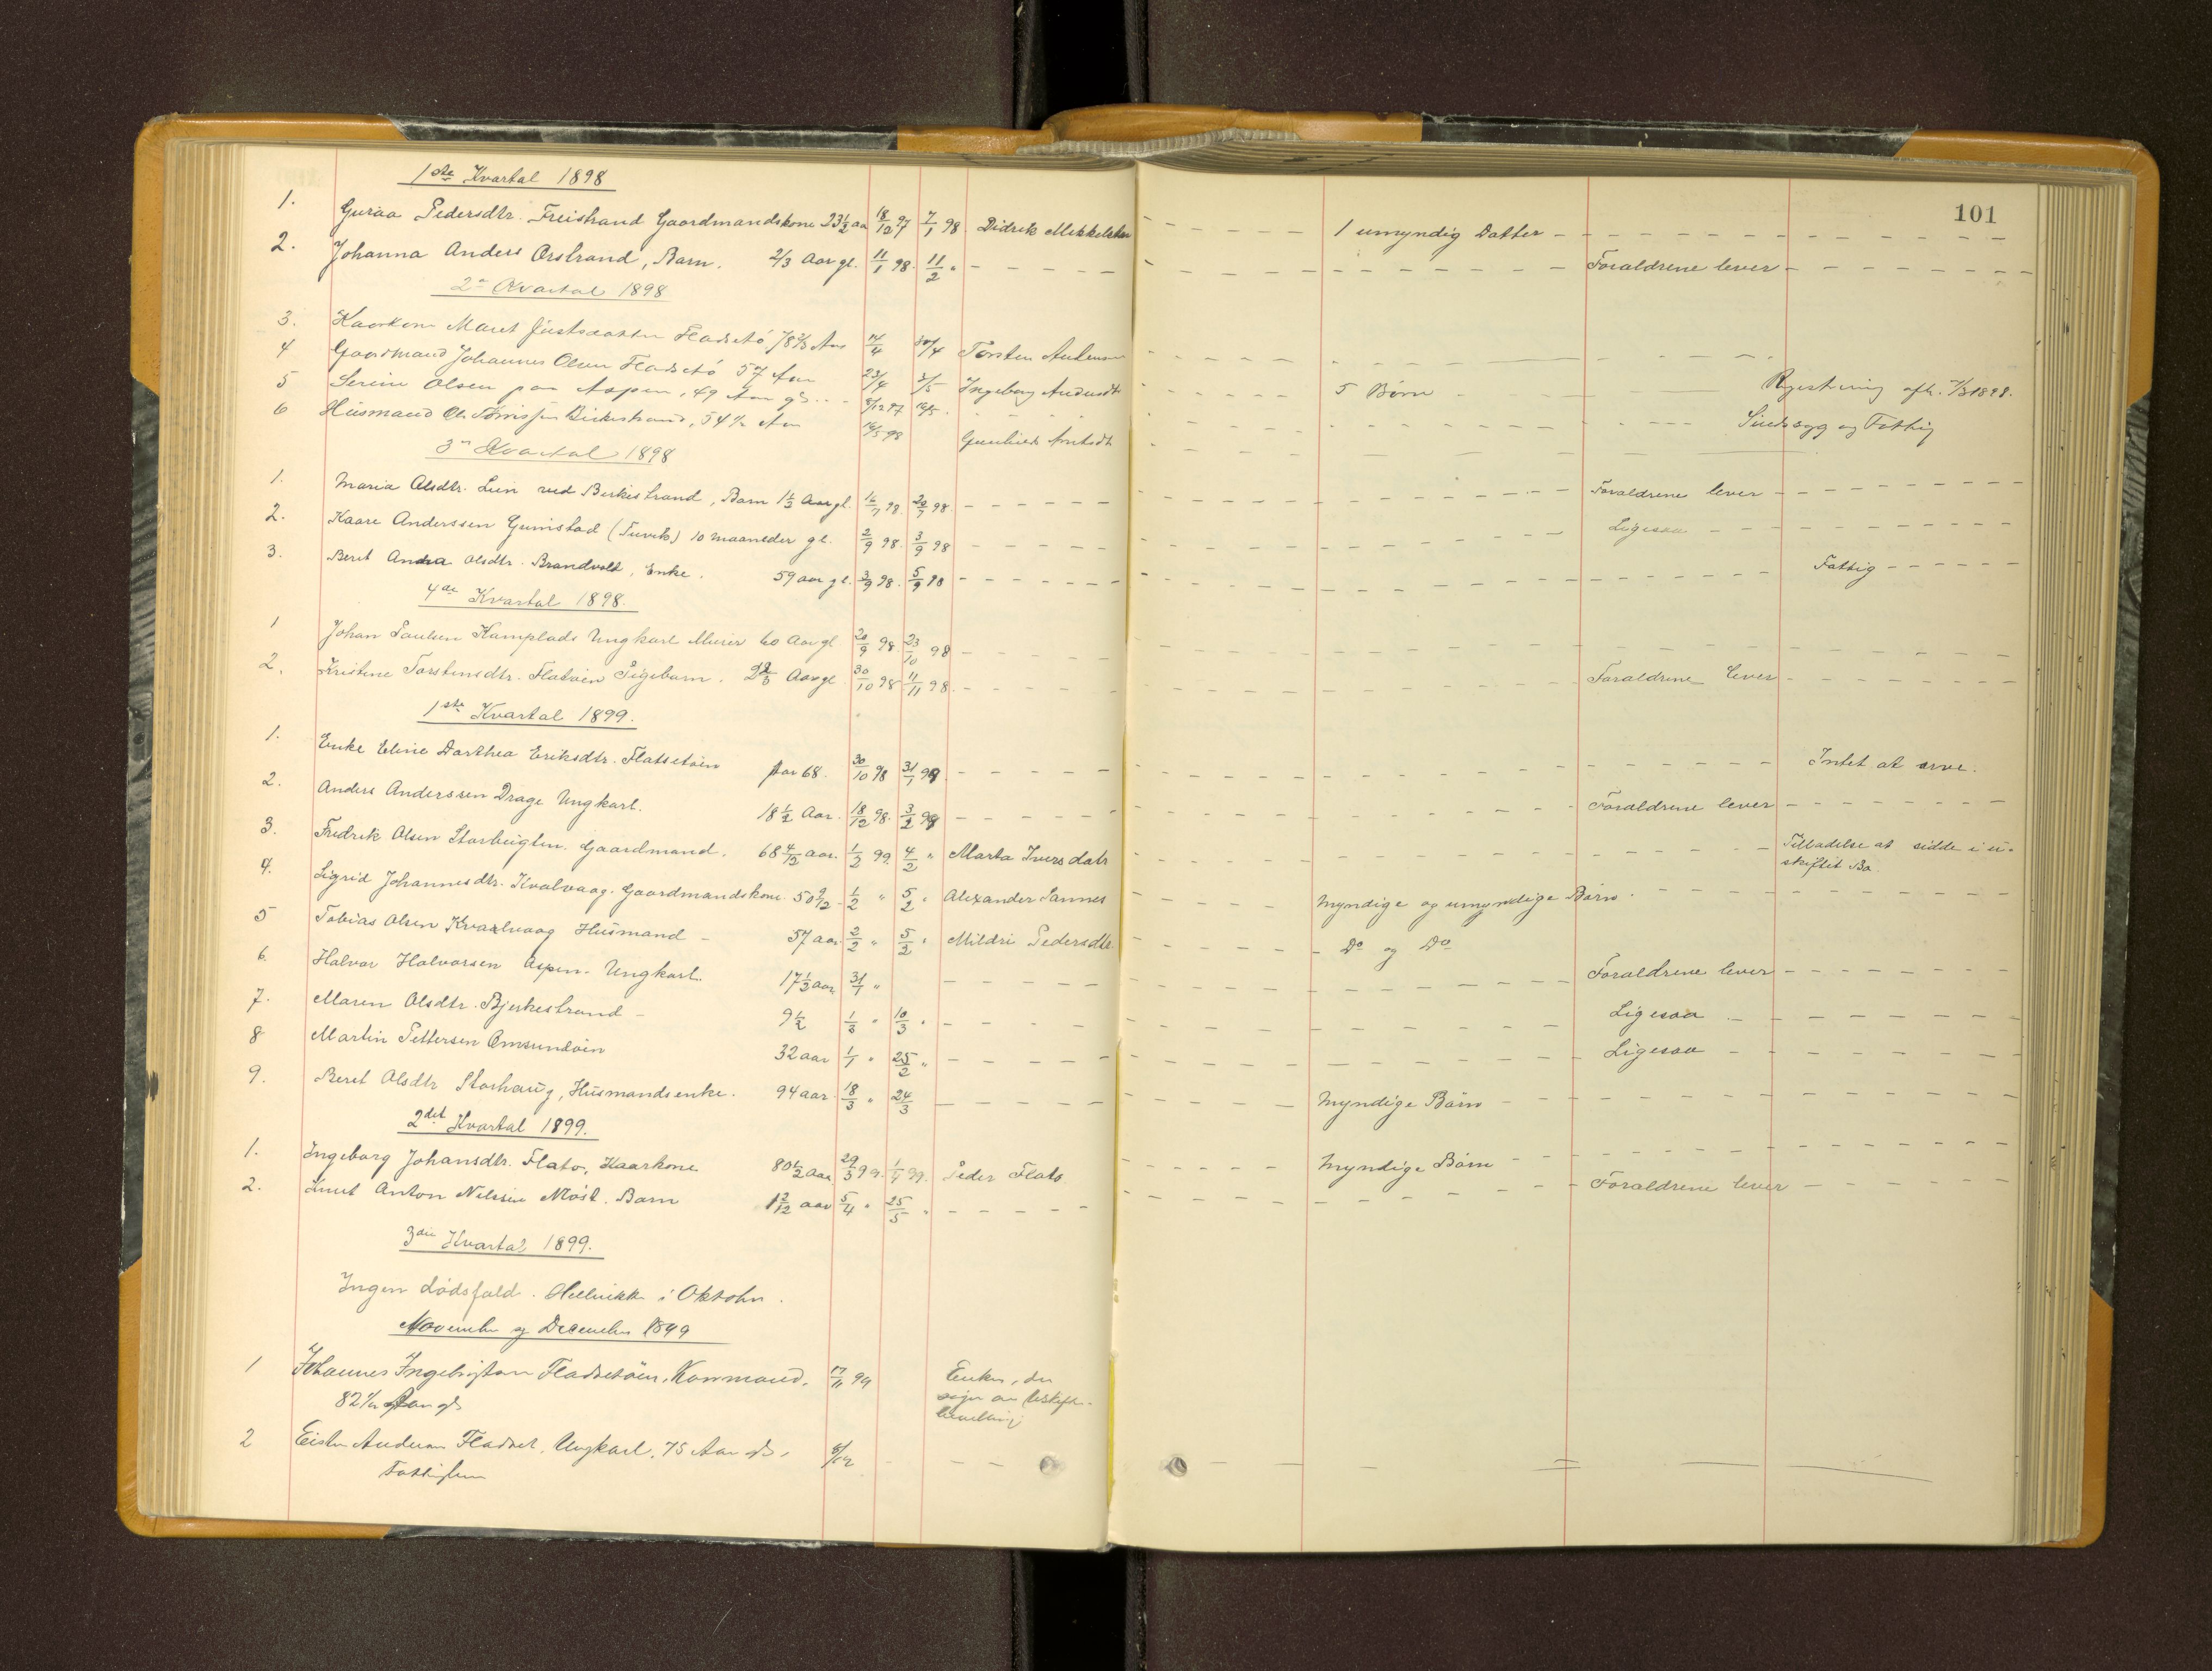 101
1ste Kvartal 1898
1. Guraa Pedersdtr. Freistrand Gaardmandskone 23½ aar 18/12 97 7/1 98 Didrik Mikkelsen - - - 1 umyndig Datter - - -
2. Johanna Anders Orstrand, Barn. 2/3 Aar gl. 11/1 98. 11/2 " - - - Forældrene lever - - -
2. Kvartal 1898
3. Kaarkone Maret Fladsetø 78 2/3 Aar 14/4 30/4 Torsten - - -
4 Gaardmand Johannes Olsen Fladsetø 57 Aar 23/4 3/5 Ingeborg - - - 5 Børn - - - 1898.
5 Serine Olsen paa Aspen, 49 Aar gl. 8/12 97 16/5. - - - Sindssyg og Fattig
6 Husmand Ole Birkestrand, 54½ Aar 16/5 98 Gunhild - - -
3. Kvartal 1898
1. Maria Olsdtr. Lein ved Birkestrand, Barn 1½ Aar gl. 98. 20/7 98. - - - Forældrene lever - - -
2. Kaare Anderssen Gimstad (Turvik) 10 maaneder gl. 2/9 98. 3/9 98 - - - Ligesaa - - -
3. Beret Andrea Olsdtr. Brandvold, Enke. 59 aar gl. 3/9 98. 5/9 98 - - - Fattig - - -
4de Kvartal 1898.
1 Johan Paulsen Ungkarl Murer 60 Aar gl. 20/9 98. 23/10 98 - - -
2. Kristine Torstensdtr. Flatøen Pigebarn. Aar gl 30/10 98 11/11 98. - - - Forældrene lever - - -
1ste Kvartal 1899.
1. Enke Eline Dorthea Eriksdtr. Flatsetøien Aar 68. 30/10 98 31/1 99 - - - Intet at arve.
2. Anders Anderssen Drage Ungkarl. 18½ Aar. 18/12 98. 3/2 99 - - - Forældrene lever - - -
3. Fredrik Olsen Gaardmand. 68 4/12 aar. 1/2 99. 4/2 " Marta Iversdatr - - - Tilladelse at sidde i u-
skiftet Bo.
4. Sigrid Johannesdtr. Kvalvaag. Gaardmandskone. 50 9/12 - 1/2 " 5/2 " Alexander Sannes - - - Myndige og umyndige Børn. - - -
5 Tobias Olsen Kvalvaag Husmand - 57 aar. 2/2 " 5/2 " Mildri Pedersdtr. - - - Do og Do
6. Halvor Halvorsen Aspen. Ungkarl. 17½ aar. 31/1 " - - - Forældrene lever - - -
7. Maren Olsdtr. Bjerkestrand - 9½ 1/3 " 10/3 " - - - Ligesaa - - -
8 Martin Pettersen Omsundøien 32 aar 1/1 " 25/2 " - - - Ligesaa - - -
9. Beret Olsdtr Storhaug, Husmandsenke. 94 aar. 18/3 " 24/3 - - - Myndige Børn - - -
2det Kvartal 1899.
1. Ingeborg Johansdtr. Flatø, Kaarkone 80½ aar 29/3 99. 1/4 99. Peder Flatø - - - Myndige Børn - - -
2. Knut Anton Nilssen Møst. Barn 1 2/12 aar 5/4 " 25/5 " - - - Forældrene lever - - -
3die Kvartal 1899.
Ingen dødsfald. i Oktober.
November og December 1899
1 Johannes Ingebrigtsen Fladsetøien, Kaarmand, 17/11 99 Enken, der
82½ Aar gl.
2 Andersen Fladset, Ungkarl, 75 Aar gl. 8/12 - - -
Fattiglem